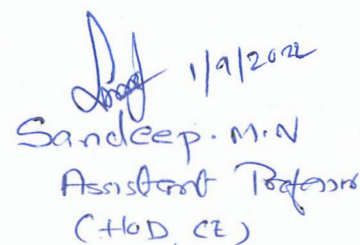 1/9/2022
Sandeep.M.N
Assistant Professor
(HOD CE)